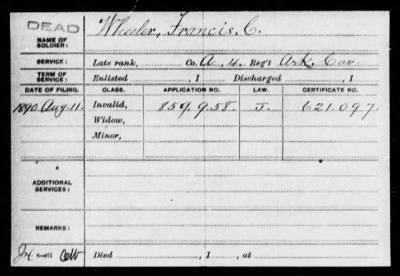 DEAD
NAME OF SOLDIER: Wheeler, Francis. C.
SERVICE: Late rank, Co. A, 4, Reg't Ark. Cav.
TERM OF SERVICE: Enlisted , 1 Discharged , 1
DATE OF FILING. CLASS. APPLICATION NO. LAW. CERTIFICATE NO.
1890 Aug. 11. Invalid, 859.958. J. 621.097.
Widow,
Minor,
ADDITIONAL SERVICES:
REMARKS:
Died , 1 , at